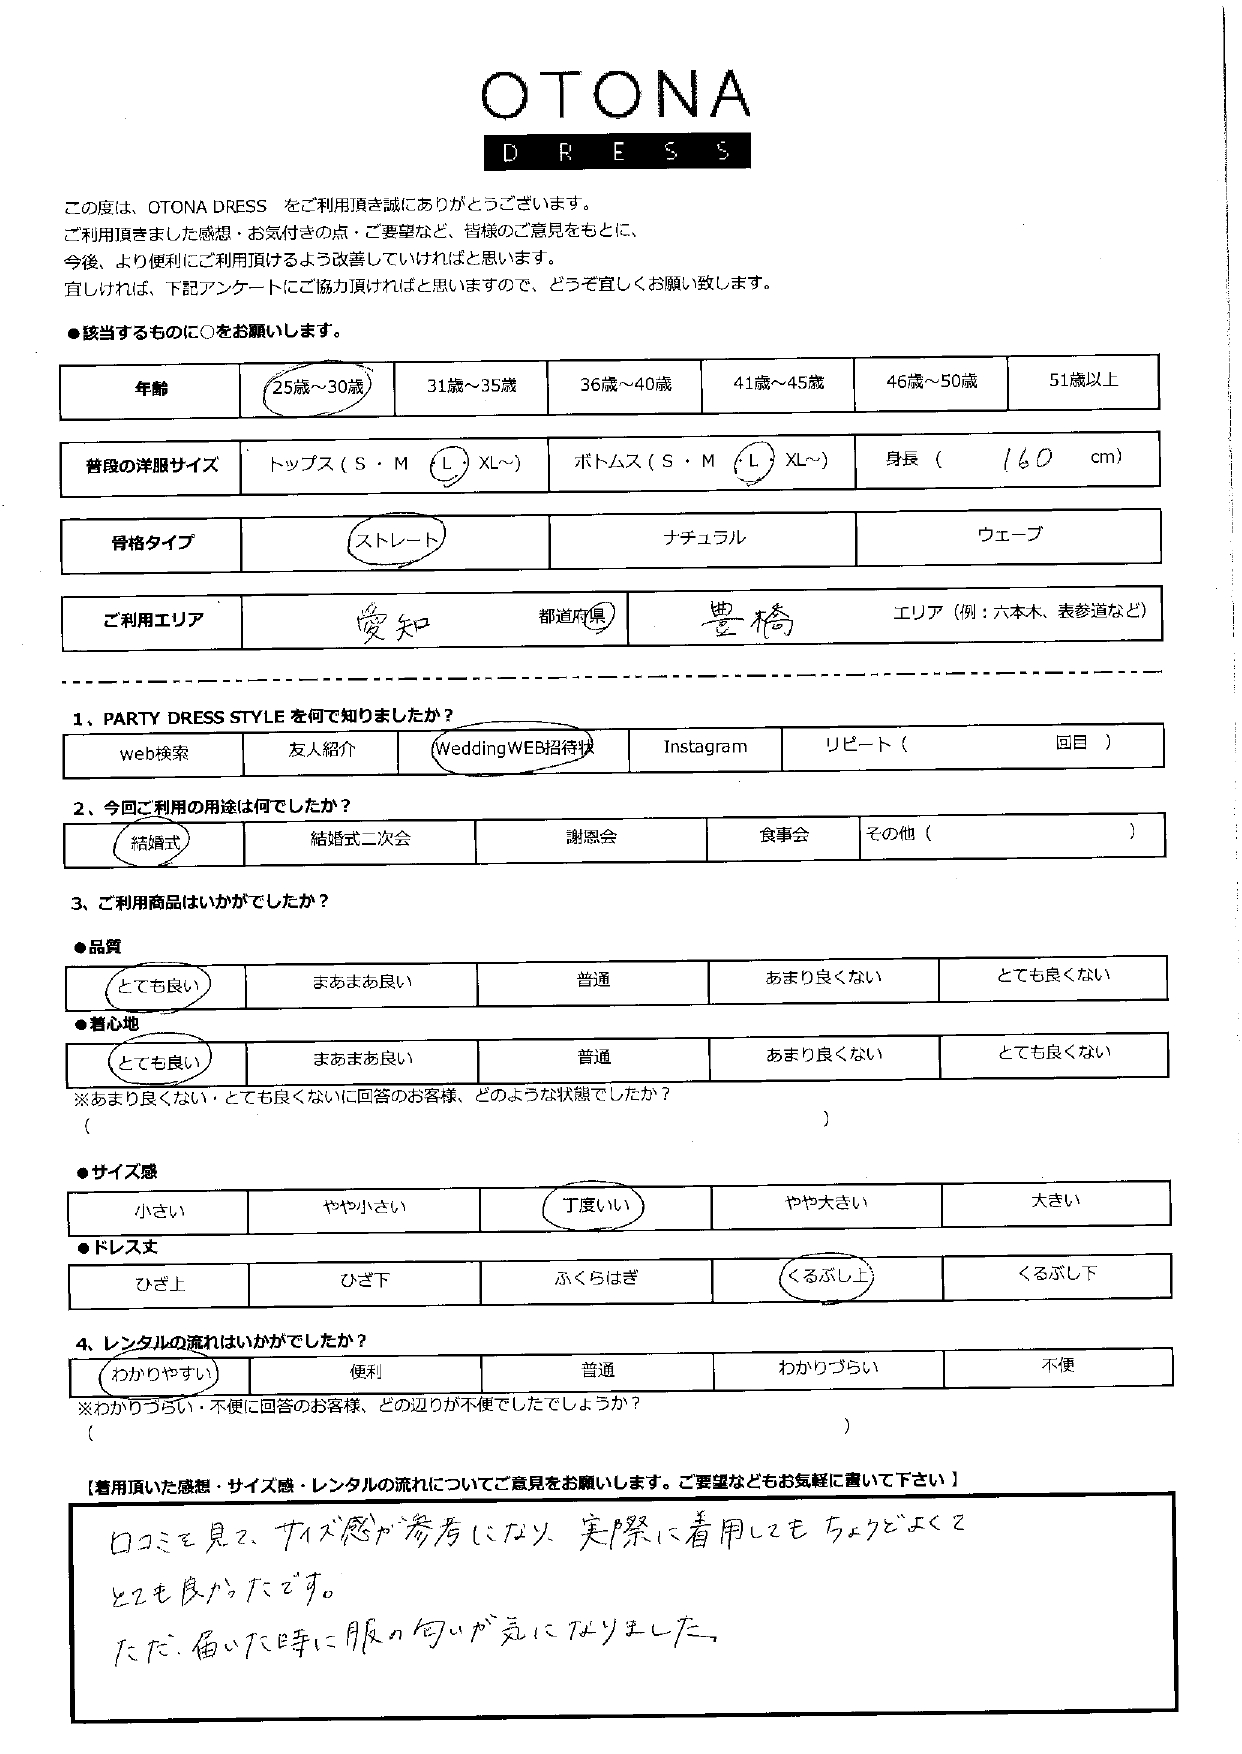 OTONA
DRESS
この度は、OTONA DRESS　をご利用頂き誠にありがとうございます。
ご利用頂きました感想・お気付きの点・ご要望など、皆様のご意見をもとに、
今後、より便利にご利用頂けるよう改善していければと思います。
宜しければ、下記アンケートにご協力頂ければと思いますので、どうぞ宜しくお願い致します。
●該当するものに○をお願いします。
年齢 25歳～30歳 31歳～35歳 36歳～40歳 41歳～45歳 46歳～50歳 51歳以上
普段の洋服サイズ トップス ( S ・ M ・ L ・ XL～) ボトムス ( S ・ M ・ L ・ XL～) 身長 ( 160 cm)
骨格タイプ ストレート ナチュラル ウェーブ
ご利用エリア 愛知 都道府県 豊橋 エリア（例：六本木、表参道など）
1、PARTY DRESS STYLE を何で知りましたか？
web検索 友人紹介 WeddingWEB招待状 Instagram リピート（ 回目 ）
2、今回ご利用の用途は何でしたか？
結婚式 結婚式二次会 謝恩会 食事会 その他（ ）
3、ご利用商品はいかがでしたか？
●品質
とても良い まあまあ良い 普通 あまり良くない とても良くない
●着心地
とても良い まあまあ良い 普通 あまり良くない とても良くない
※あまり良くない・とても良くないに回答のお客様、どのような状態でしたか？
( )
●サイズ感
小さい やや小さい 丁度いい やや大きい 大きい
●ドレス丈
ひざ上 ひざ下 ふくらはぎ くるぶし上 くるぶし下
4、レンタルの流れはいかがでしたか？
わかりやすい 便利 普通 わかりづらい 不便
※わかりづらい・不便に回答のお客様、どの辺りが不便でしたでしょうか？
( )
【着用頂いた感想・サイズ感・レンタルの流れについてご意見をお願いします。ご要望などもお気軽に書いて下さい 】
口コミを見て、サイズ感が参考になり、実際に着用してもちょうどよくて
とても良かったです。
ただ、届いた時に服の匂いが気になりました。